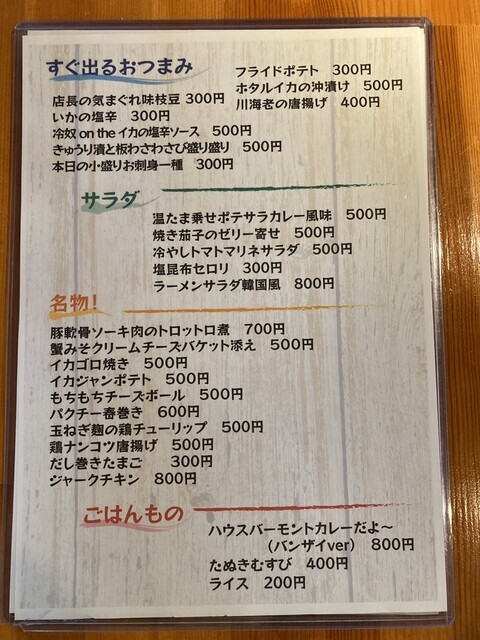 すぐ出るおつまみ
店長の気まぐれ味枝豆 300円
いかの塩辛 300円
冷奴 on the イカの塩辛ソース 500円
きゅうり漬と板わさわさび盛り盛り 500円
本日の小盛りお刺身一種 300円
フライドポテト 300円
ホタルイカの沖漬け 500円
川海老の唐揚げ 400円
サラダ
温たま乗せポテサラカレー風味 500円
焼き茄子のゼリー寄せ 500円
冷やしトマトマリネサラダ 500円
塩昆布セロリ 300円
ラーメンサラダ韓国風 800円
名物!
豚軟骨ソーキ肉のトロットロ煮 700円
蟹みそクリームチーズバケット添え 500円
イカゴロ焼き 500円
イカジャンポテト 500円
もちもちチーズボール 500円
パクチー春巻き 600円
玉ねぎ麹の鶏チューリップ 500円
鶏ナンコツ唐揚げ 500円
だし巻きたまご 300円
ジャークチキン 800円
ごはんもの
ハウスバーモントカレーだよ~
(バンザイver) 800円
たぬきむすび 400円
ライス 200円